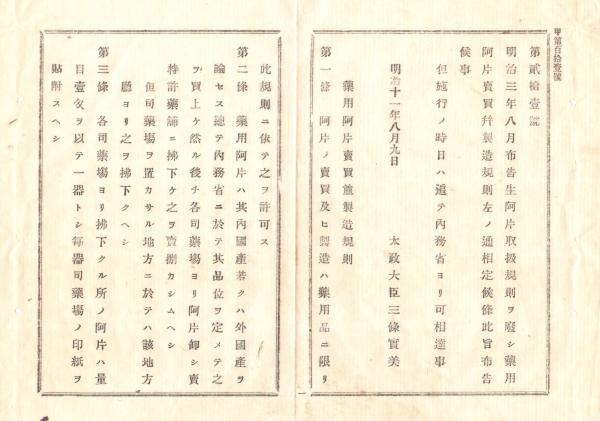 甲第百拾壹號
第貳拾壹號
明治三年八月布告生阿片取扱規則ヲ廢シ藥用
阿片賣買幷製造規則左ノ通相定候條此旨布告
候事
但施行ノ時日ハ追テ內務省ヨリ可相達事
明治十一年八月九日
太政大臣三條實美
藥用阿片賣買並製造規則
第一條 阿片ノ賣買及ヒ製造ハ藥用品ニ限リ
此規則ニ依テ之ヲ許可ス
第二條 藥用阿片ハ其內國產若クハ外國產ヲ
論セス總テ內務省ニ於テ其品位ヲ定メテ之
ヲ買上ケ然ル後チ各司藥場ヨリ阿片卸シ賣
特許藥舖ニ拂下ケ之ヲ賣捌カシムヘシ
但司藥場ヲ置カサル地方ニ於テハ該地方
廳ヨリ之ヲ拂下クヘシ
第三條 各司藥場ヨリ拂下クル所ノ阿片ハ量
目壹匁ヲ以テ一器トシ每器司藥場ノ印紙ヲ
貼附スヘシ